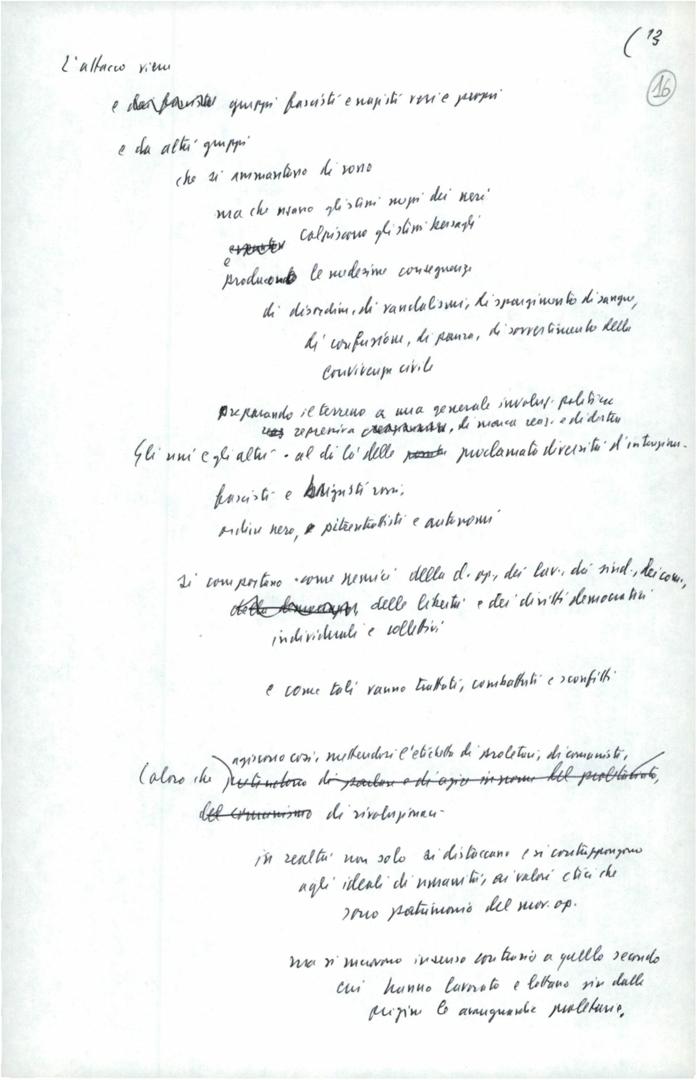 ( 13
16
L'attacco viene
e da fascisti gruppi fascisti e nazisti veri e propri
e da altri gruppi
che si ammantano di rosso
ma che usano gli stessi mezzi dei neri
colpiscono gli stessi bersagli
e
producendo le medesime conseguenze
di disordini, di vandalismi, di spargimento di sangue,
di confusione, di paura, di sovvertimento della
convivenza civile
preparando il terreno a una generale involuz. politica
repressiva, di marca reaz. e di destra
Gli uni e gli altri - al di là delle proclamate diversità d'intenzioni -
fascisti e brigatisti rossi,
ordine nero, e pitrentottisti e autonomi
si comportano come nemici della d. op., dei lav., dei sind., dei com.,
della democrazia, delle libertà e dei diritti democratici
individuali e collettivi
e come tali vanno trattati, combattuti e sconfitti
agiscono così, mettendosi l'etichetta di proletari, di comunisti,
Coloro che pretendono di parlare e di agire in nome del proletariato,
del comunismo di rivoluzionari
in realtà non solo si distaccano e si contrappongono
agli ideali di umanità, ai valori etici che
sono patrimonio del mov. op.
ma si muovono in senso contrario a quello secondo
cui hanno lavorato e lottano sin dalle
origini le avanguardie proletarie.